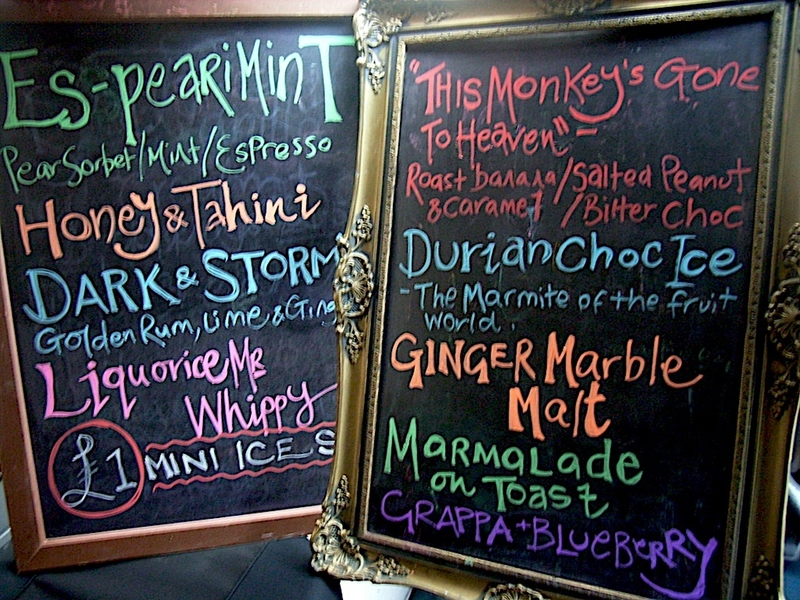 Es-peariMinT
Pear Sorbet/Mint/Espresso
Honey & Tahini
DARK & STORM
Golden Rum, Lime, & Ging
Liquorice Mr
Whippy
£1 MINI ICES
"THIS MonKey's Gone
To Heaven" -
Roast banana/Salted Peanut
& Caramel /Bitter Choc
Durian Choc Ice
- The Marmite of the fruit
world.
GINGER Marble
Malt
MARMALADE
on Toast
GRAPPA + BLUEBERRY